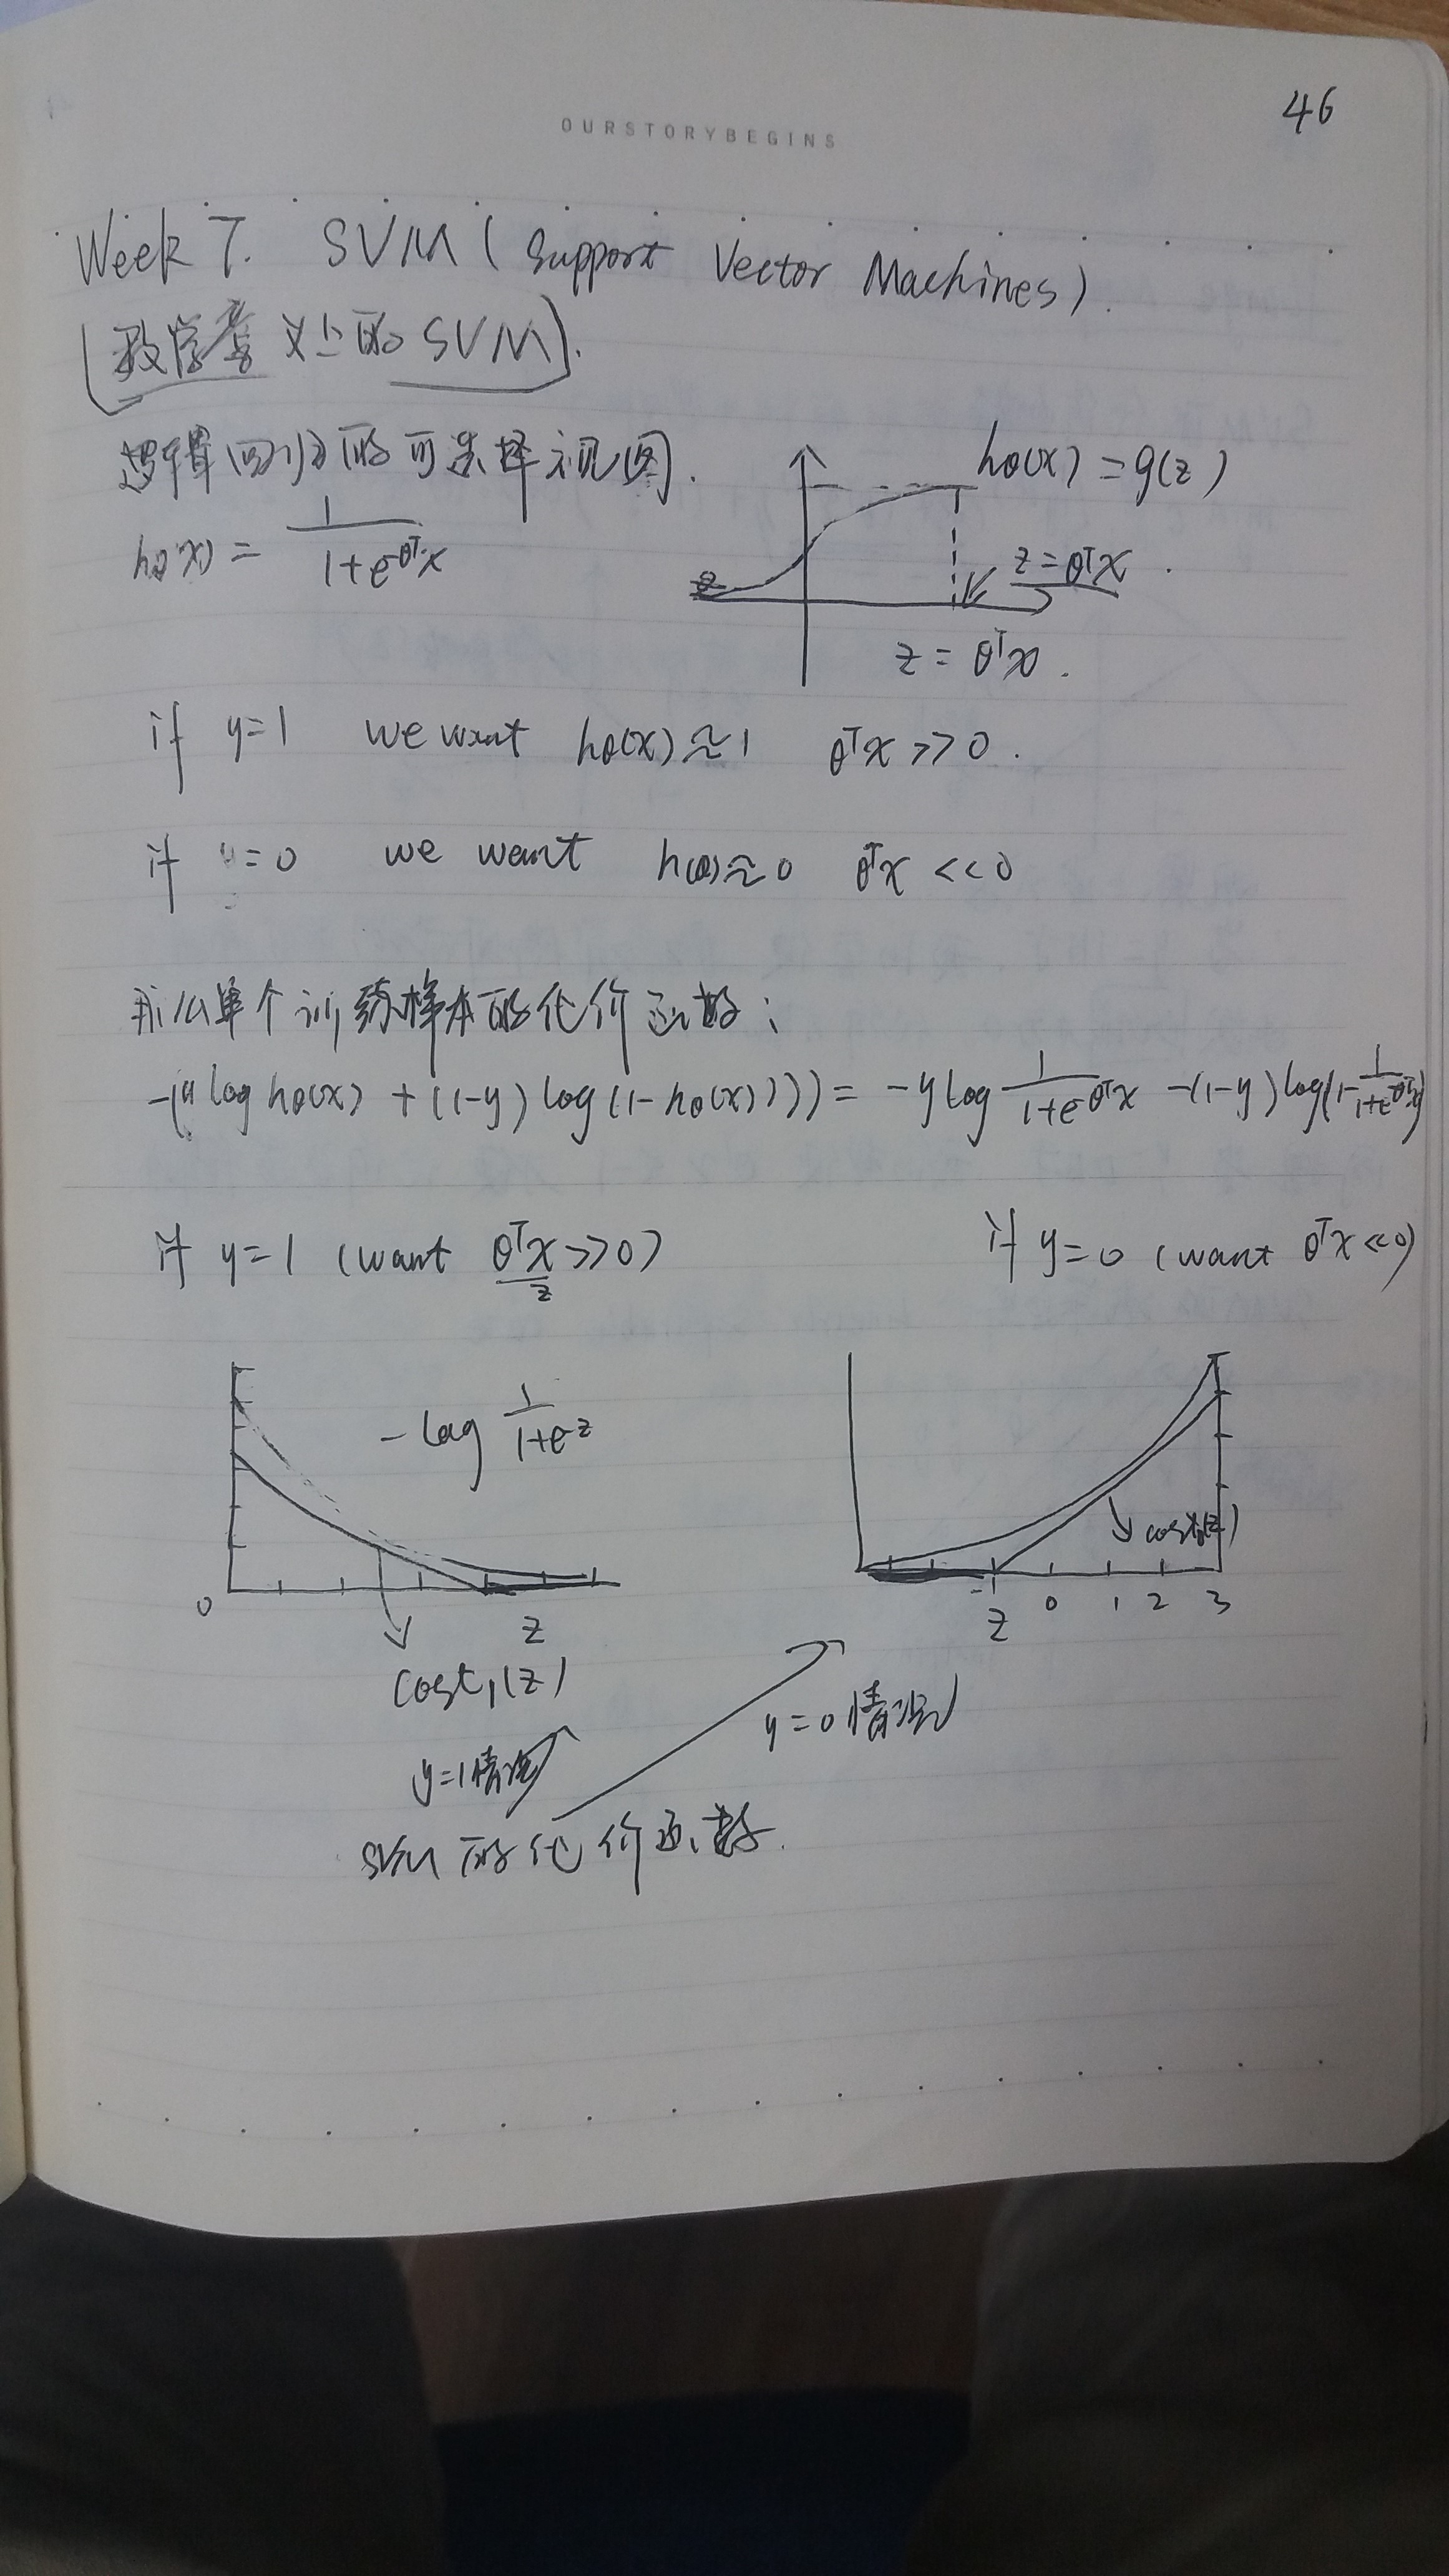 46
OURSTORYBEGINS
Week 7. SVM (Support Vector Machines).
(数学意义上的SVM).
逻辑回归的可选择视图.
hθ(x) = g(z)
hθ(x) = 1/(1+e^-θᵀx)
z = θᵀx.
z = θᵀx.
if y=1 we want hθ(x)≈1 θᵀx>>0.
if y=0 we want h(θ)≈0 θᵀx<<0
那么单个训练样本的代价函数:
-(y log hθ(x) + (1-y) log(1-hθ(x)))) = -y log 1/(1+e^-θᵀx) -(1-y) log(1- 1/(1+e^-θᵀx))
if y=1 (want θᵀx>>0) if y=0 (want θᵀx<<0)
z
-log 1/(1+e^-z)
cost₀(z)
0 z
z 0 1 2 3
cost₁(z)
y=1情况 y=0情况
SVM的代价函数.